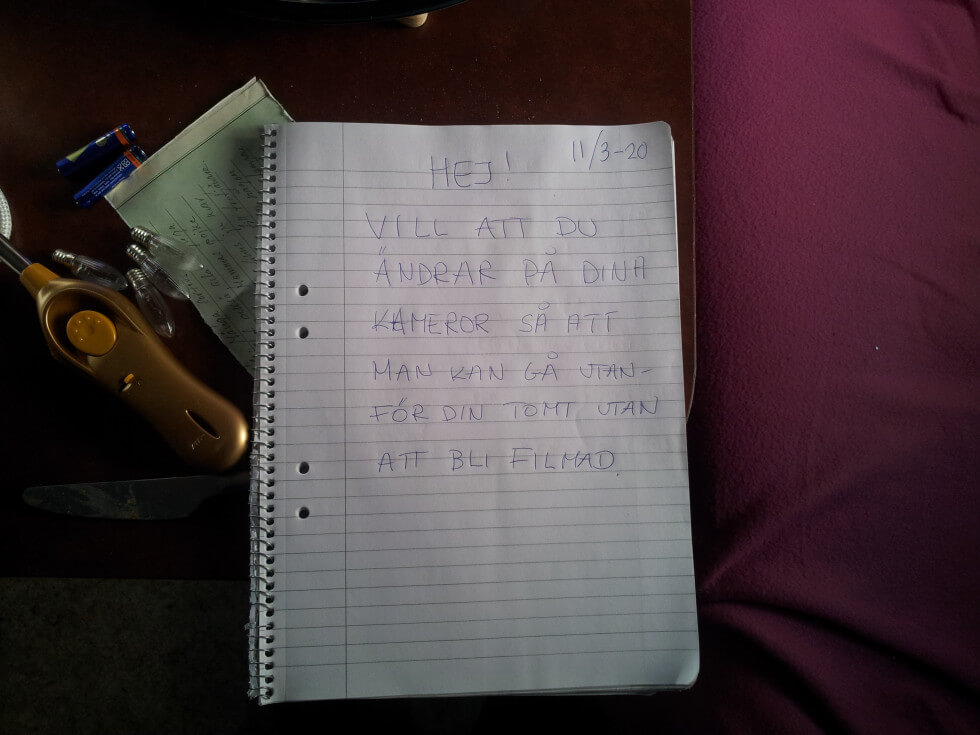 11/3-20
HEJ!
VILL ATT DU
ÄNDRAR PÅ DINA
KAMEROR SÅ ATT
MAN KAN GÅ UTAN-
FÖR DIN TOMT UTAN
ATT BLI FILMAD.